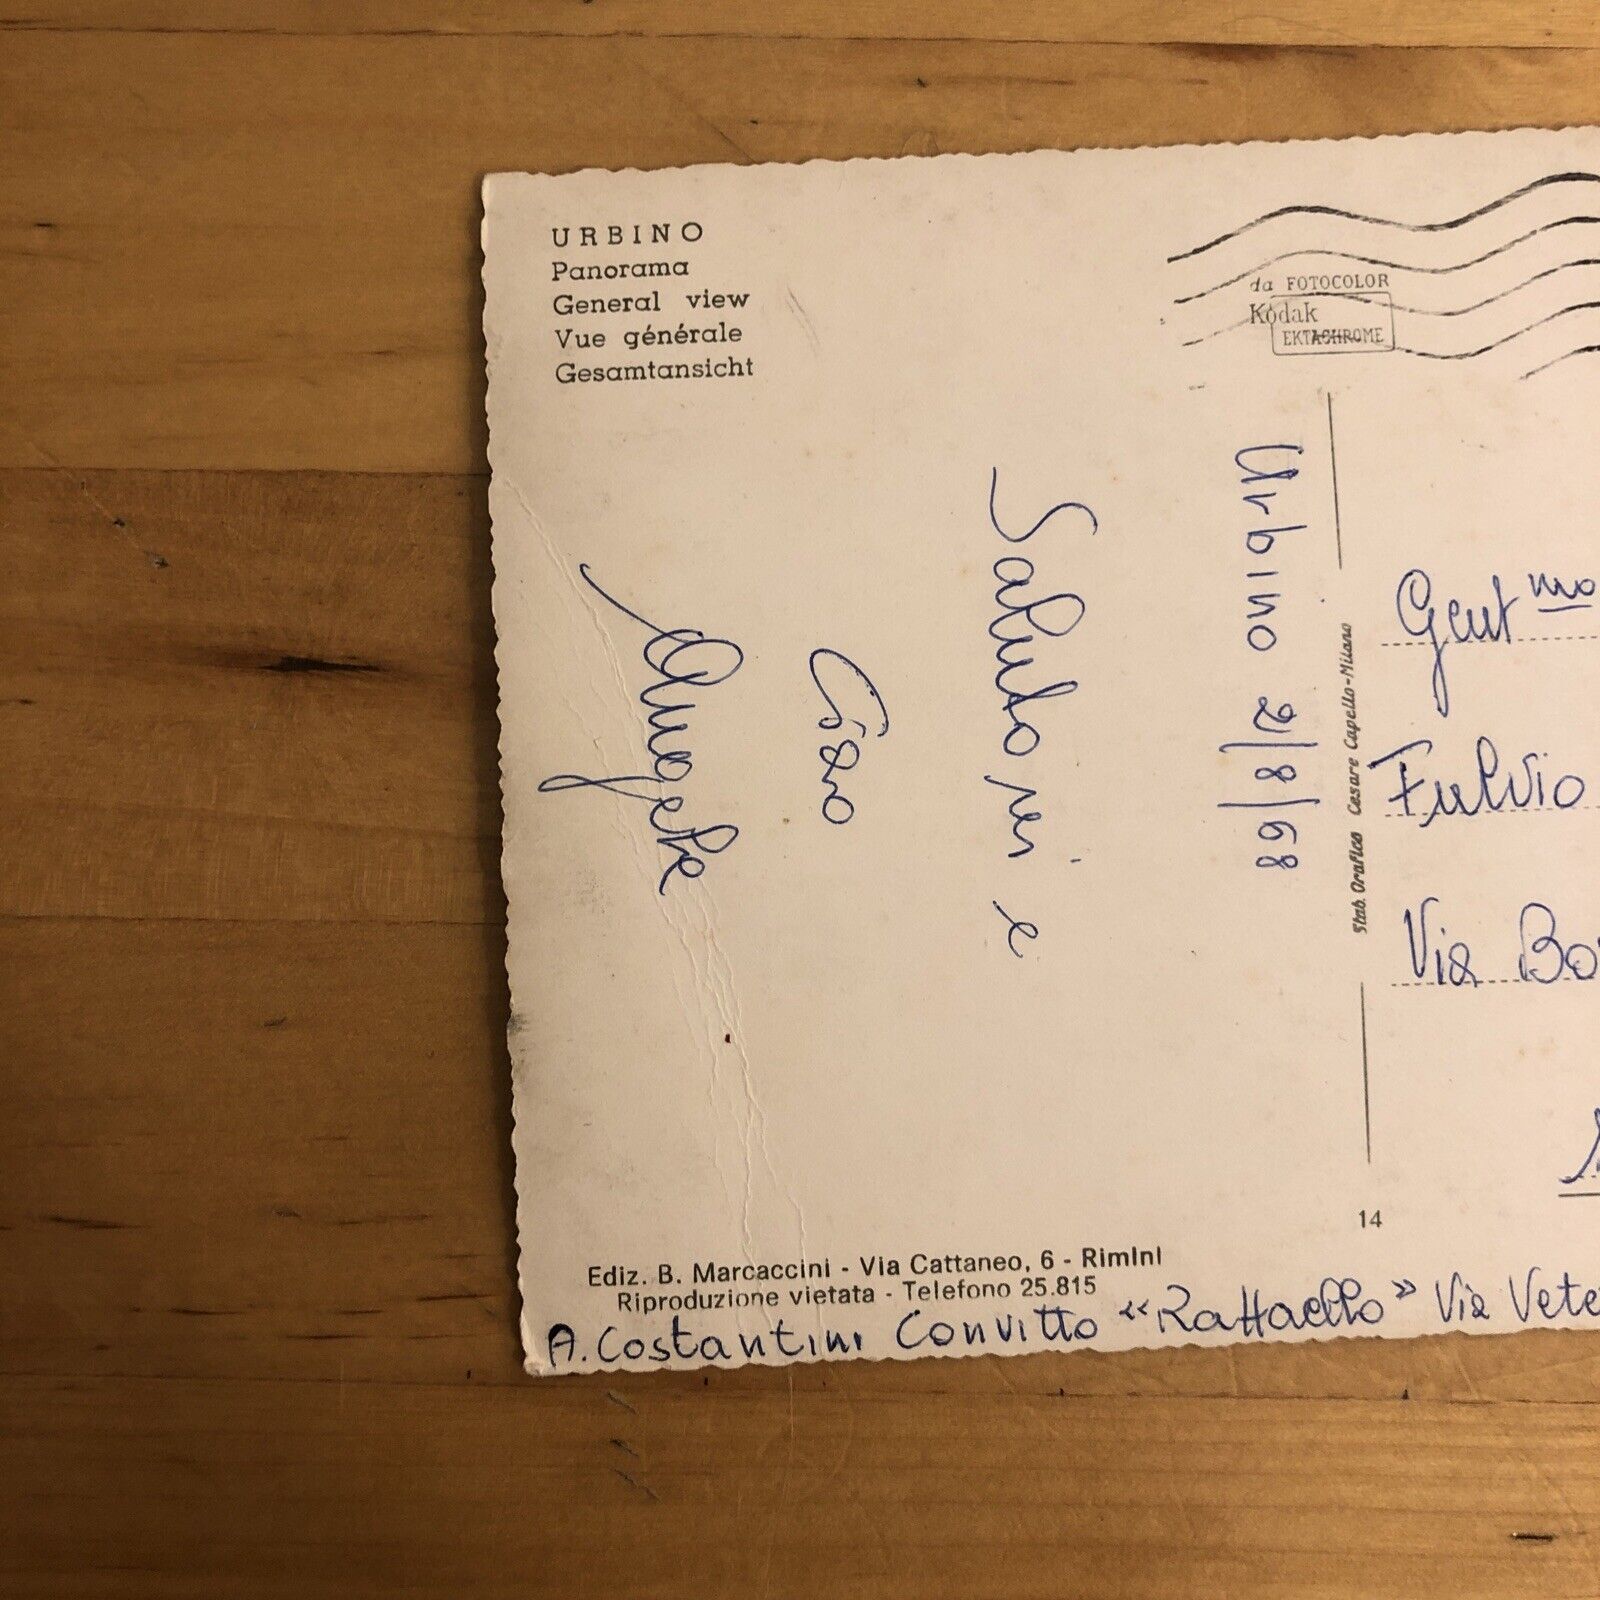 URBINO
Panorama
General view
Vue générale
Gesamtansicht
da FOTOCOLOR
Kodak
EKTACHROME
Urbino 2/8/68
Salutoni e
Ciao
Stab. Grafico Cesare Capello-Milano
Gent mo
Fulvio
Via Bo
14
Ediz. B. Marcaccini - Via Cattaneo, 6 - Rimini
Riproduzione vietata - Telefono 25.815
A. Costantini Convitto "Raffaello" Via Vete